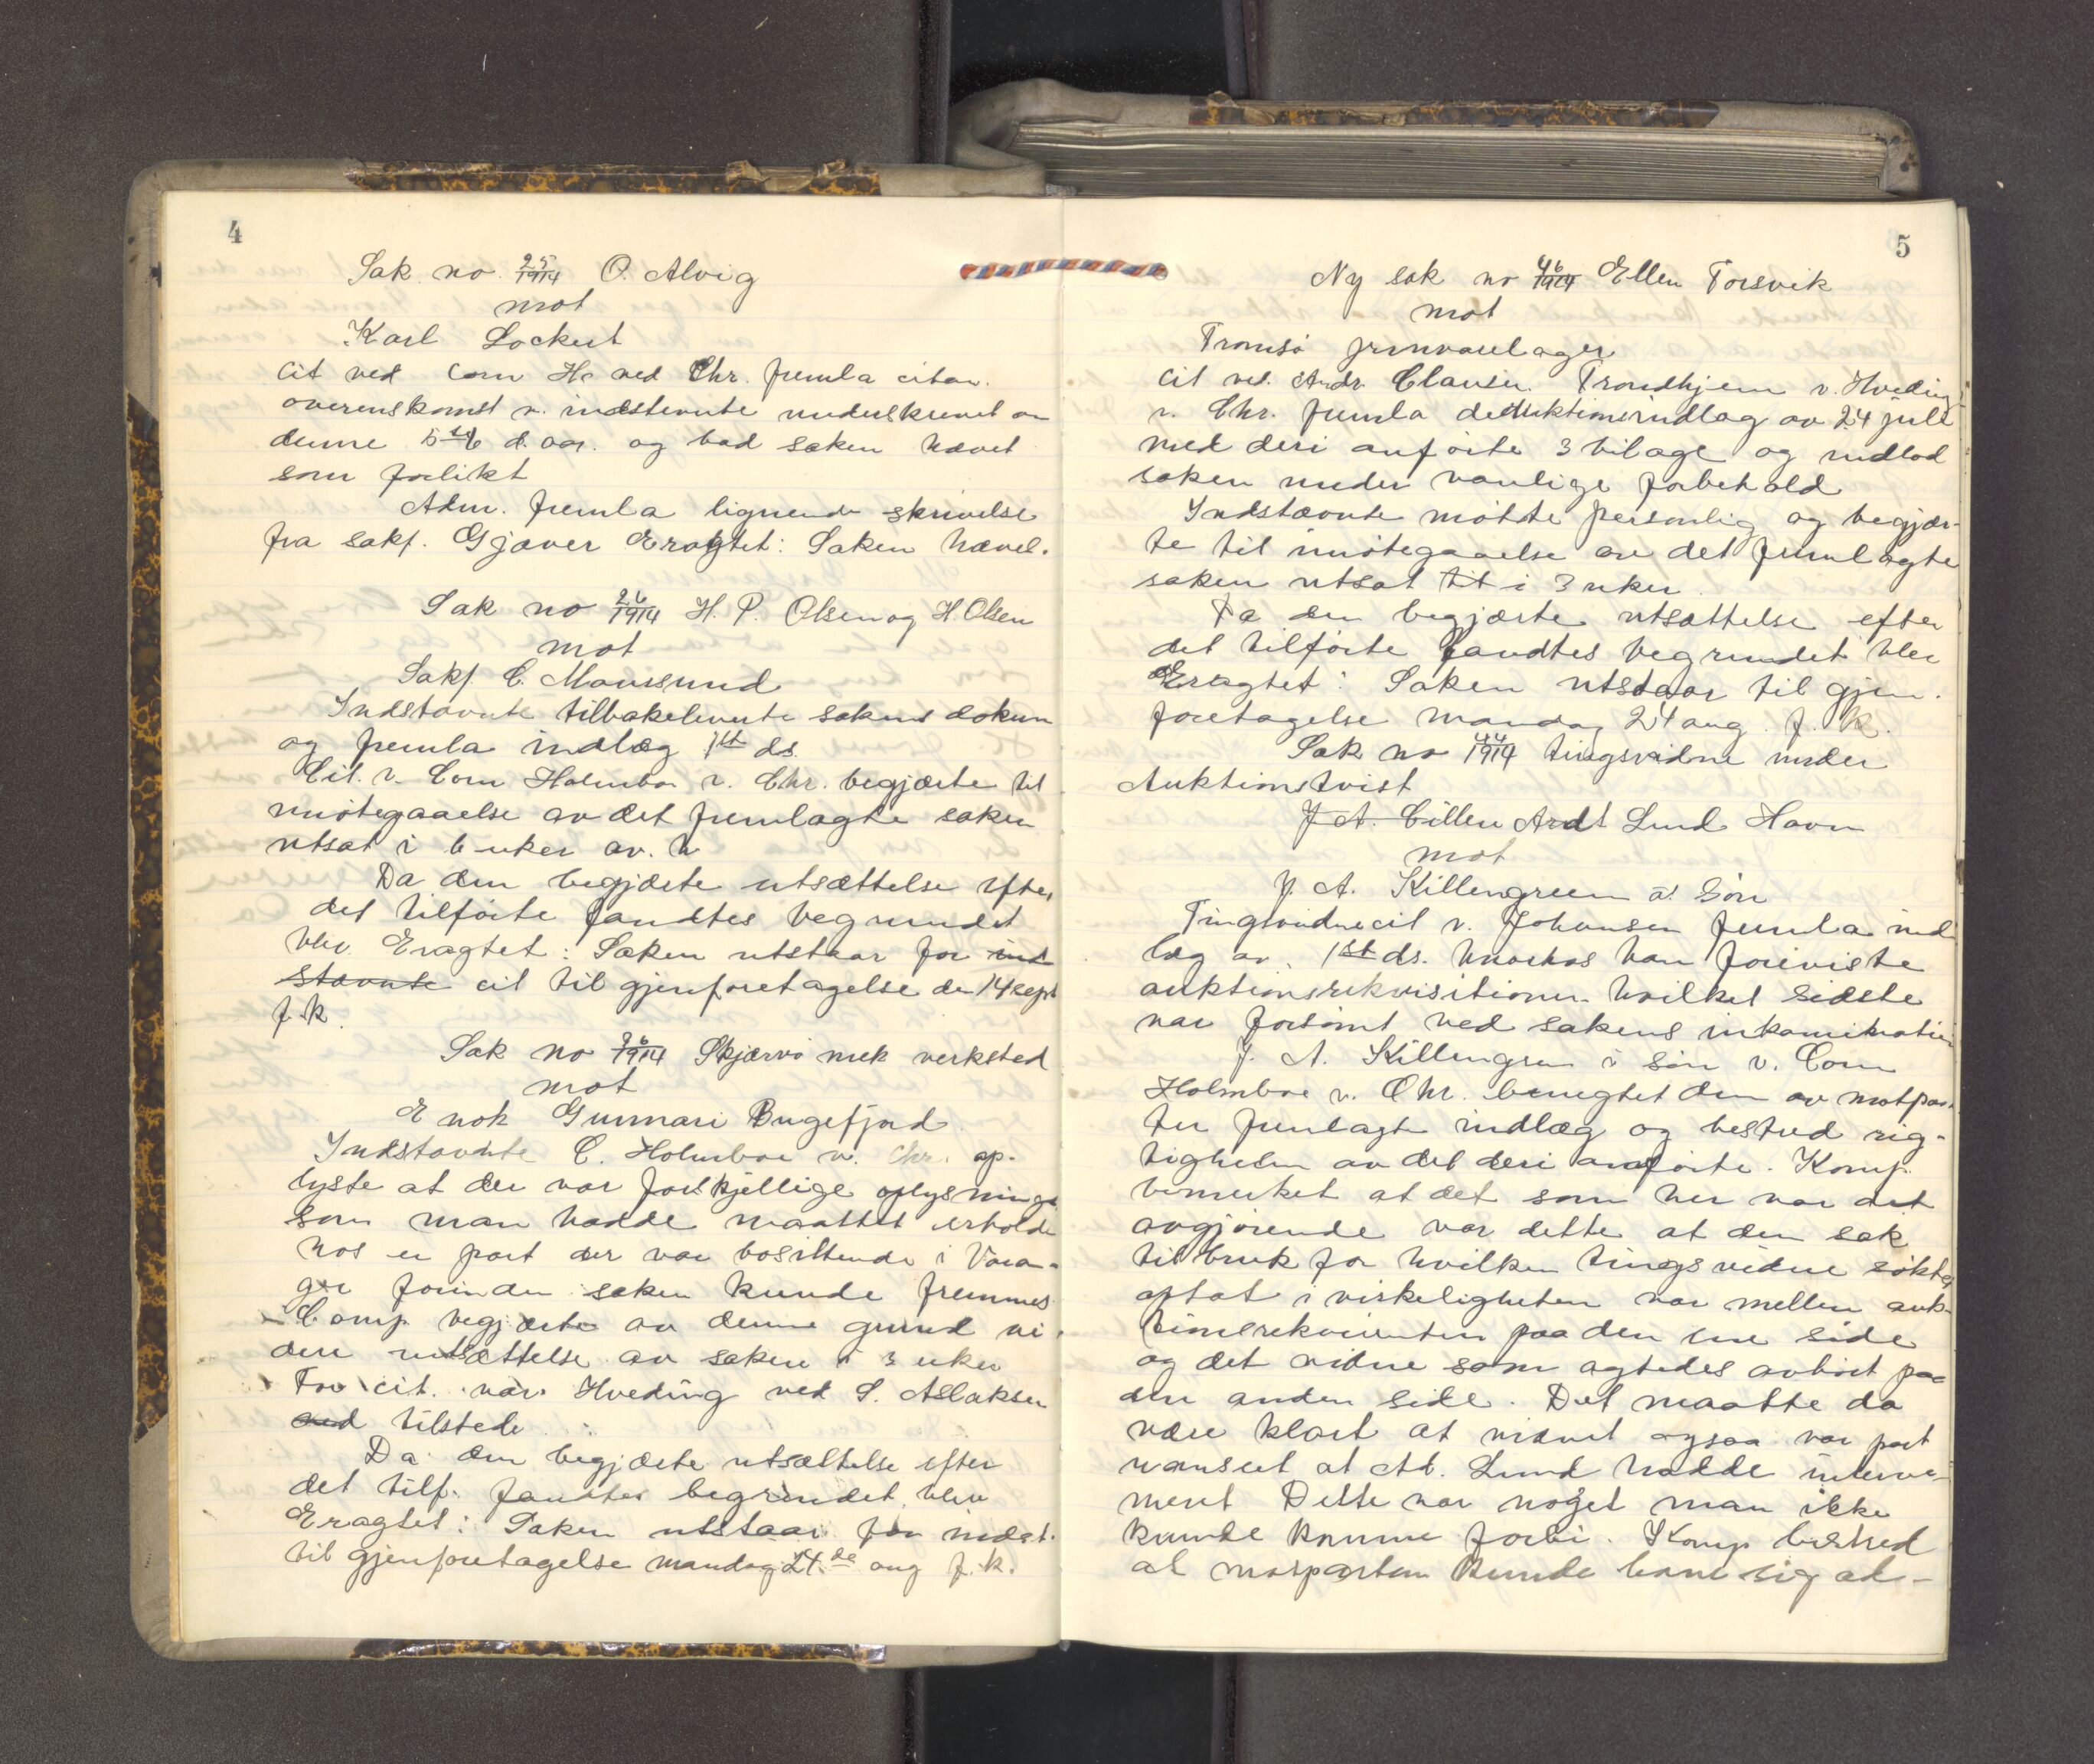 4
Sak no. 25/1914 O. Alvig
mot
Karl Lockert
Cit ved Corn H. ved Chr. fremla citav.
overenskomst v. indstevnte underskrevet av
denne 5/6 d. aar. og bad saken hævet
som forlikt
Adm. fremla lignende skrivelse
fra sakf. Gjæver Eragtet: Saken hæves.
Sak no 26/1914 H. P. Olsen og H. Olsen
mot
Sakf. C. Maursund
Indstævnte tilbakeleverte sakens dokum
og fremla indlæg 1st ds.
Cit. v. Corn Holmboe v. Chr. begjærte til
imøtegaaelse av det fremlagte saken
utsat i 6 uker av. h
Da den begjærte utsættelse efter
det tilførte fandtes begrundet
blev Eragtet: Saken utstaar for ind
stævnte cit til gjenforetagelse den 14 sept
f. k.
Sak no 36/1914 Skjærvø mek verksted
mot
Enok Gunnari Bugefjord.
Indstævnte C. Holmboe v. Chr. op-
lyste at der var forskjellige oplysninger
som man hadde maattet erholde
hos en part der var bosittende i Varan-
ger forinden saken kunde fremmes
Comp. begjærte av denne grund vi-
dere utsættelse av saken i 3 uker
For cit. var Hveding ved S. Aslaksen
ved tilstede.
Da den begjærte utsættelse efter
det tilf. fandtes begrundet, blev
Eragtet: Saken utstaar for indst.
til gjenforetagelse mandag 24.de aug f. k.
5
Ny sak no 46/1914 Ellen Forsvik
mot
Tromsø jernvarelager
Cit ved. Andr. Clausen Trondhjem v. Hveding
v. Chr. fremla deduktionsindlæg av 24 juli
med deri anførte 3 bilage og indlod
saken under vanlige forbehold
Indstævnte møtte personlig og begjær-
te til imøtegaaelse av det fremlagte
saken utsat til i 3 uker.
Da den begjærte utsættelse efter
det tilførte fandtes begrundet blev
Eragtet: Saken utstaar til gjen-
foretagelse mandag 24 aug. f. k.
Sak no 44/1914 tingsvidne under
Auktionstvist
J. A. Cillen Ardt Lund Havn
mot
J. A. Killengreen & Søn
Tingsvidnecit v. Johansen fremla ind
læg av 1st ds. hvorhos han foreviste
auktionsrekvisitionen hvilket sidste
var fortømt ved sakens inkamination
J. A. Killengreen & søn v. Corn
Holmboe v. Chr. benegtet den av motpar-
ten fremlagte indlæg og bestred rig-
tigheten av det deri anførte. Komp.
bemerket at det som her var det
avgjørende var dette at den sak
til bruk for hvilken tingsvidne søktes
optat i virkeligheten var mellem auk-
tionsrekvirenten paa den ene side
og det vidne som agtedes avhørt paa
den anden side. Det maatte da
være klart at vidnet ogsaa var part
uanseet at Ad. Lund hadde interve-
neret Dette var noget man ikke
kunde komme forbi. Komp. bestred
at motparten kunde                 sig